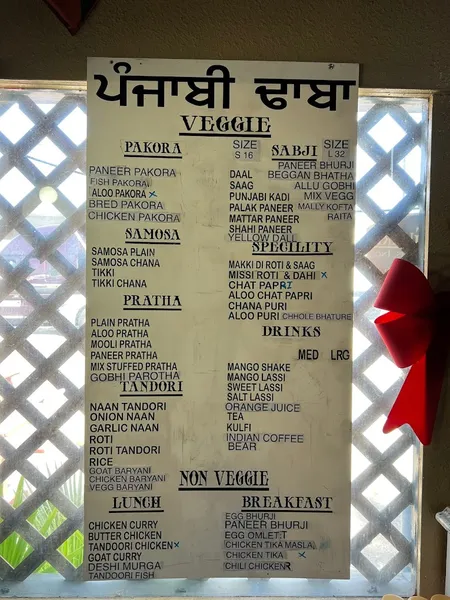 ਪੰਜਾਬੀ ਢਾਬਾ
VEGGIE
PAKORA
PANEER PAKORA
FISH PAKORA
ALOO PAKORA x
BRED PAKORA
CHICKEN PAKORA
SAMOSA
SAMOSA PLAIN
SAMOSA CHANA
TIKKI
TIKKI CHANA
PRATHA
PLAIN PRATHA
ALOO PRATHA
MOOLI PRATHA
PANEER PRATHA
MIX STUFFED PRATHA
GOBHI PAROTHA
TANDORI
NAAN TANDORI
ONION NAAN
GARLIC NAAN
ROTI
ROTI TANDORI
RICE
GOAT BARYANI
CHICKEN BARYANI
VEGG BARYANI
SIZE SABJI SIZE
S 16 L 32
PANEER BHURJI
DAAL BEGGAN BHATHA
SAAG ALLU GOBHI
PUNJABI KADI MIX VEGG
PALAK PANEER MALLY KOFTA
MATTAR PANEER RAITA
SHAHI PANEER
YELLOW DALL
SPECILITY
MAKKI DI ROTI & SAAG
MISSI ROTI & DAHI x
CHAT PAPRI
ALOO CHAT PAPRI
CHANA PURI
ALOO PURI CHHOLE BHATURE
DRINKS
MED LRG
MANGO SHAKE
MANGO LASSI
SWEET LASSI
SALT LASSI
ORANGE JUICE
TEA
KULFI
INDIAN COFFEE
BEAR
NON VEGGIE
LUNCH
CHICKEN CURRY
BUTTER CHICKEN
TANDOORI CHICKEN x
GOAT CURRY
DESHI MURGA
TANDOORI FISH
BREAKFAST
EGG BHURJI
PANEER BHURJI
EGG OMLET T
CHICKEN TIKA MASLA
CHICKEN TIKA x
CHILI CHICKEN R